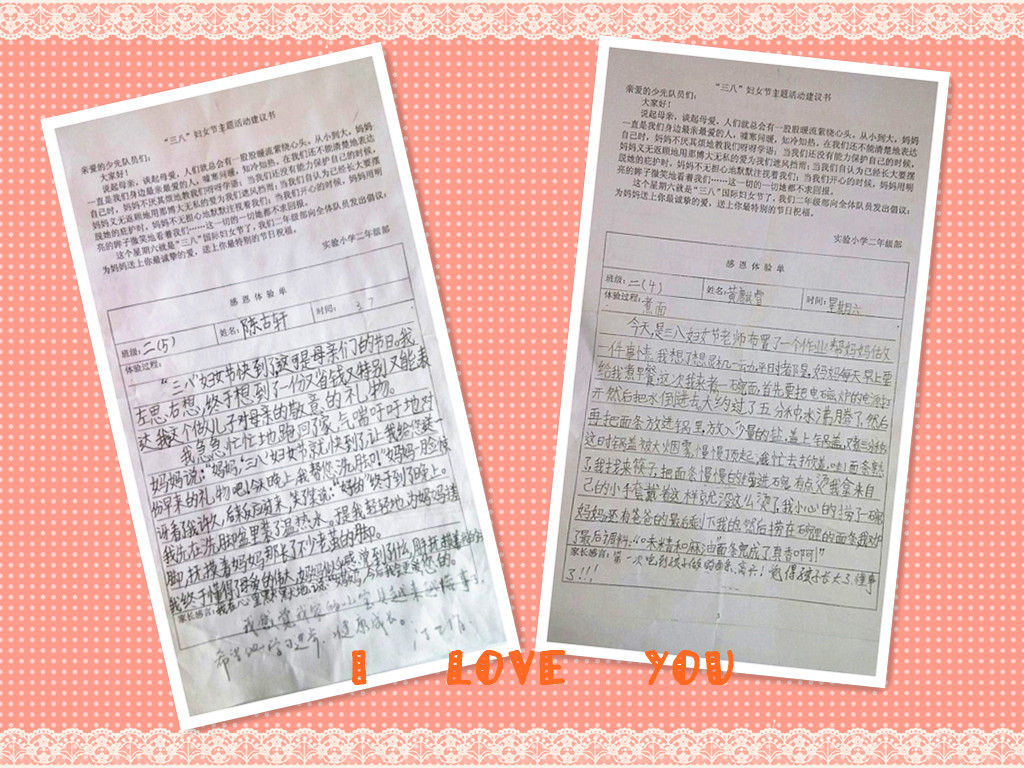 “三八”妇女节主题活动建议书
亲爱的少先队员们：
大家好！
说起母亲，谈起母爱，人们就总会有一股股暖流萦绕心头。从小到大，妈妈
一直是我们身边最亲最爱的人，嘘寒问暖，知冷知热。在我们还不能清楚地表达
自己时，妈妈不厌其烦地教我们呀呀学语；当我们还没有能力保护自己的时候，
妈妈又无返顾地用那博大无私的爱为我们遮风挡雨；当我们自认为已经长大要摆
脱她的庇护时，妈妈不无担心地默默注视着我们；当我们开心的时候，妈妈用明
亮的眸子微笑地看着我们……这一切的一切她都不求回报。
这个星期六就是“三八”国际妇女节了，我们二年级部向全体队员发出倡议：
为妈妈送上你最诚挚的爱，送上你最特别的节日祝福。
实验小学二年级部
感恩体验单
班级：二(5) 姓名：陈古轩 时间：3 7
体验过程：
“三八”妇女节快到了,这可是母亲们的节日。我
左思右想，终于想到了一份又省钱又特别又能表
达我这个做儿子对母亲的敬意的礼物。
我急急忙忙地跑回了家，气喘吁吁地对
妈妈说：“妈妈，‘三八’妇女节就快到了，让我给您送一
份早来的礼物吧！今天晚上我帮您洗脚！”妈妈一脸惊
讶看了我许久，后来反应过来，笑眯眯说：“好的”终于到了晚上。
我先在洗脚盆里装了温热水。提我轻轻地为妈妈搓
脚，抚摸着妈妈那长了不少老茧的脚。
我终于懂得了母爱的伟大
家长感言：
希望他学习进步，健康成长。
“三八”妇女节主题活动建议书
亲爱的少先队员们：
大家好！
说起母亲，谈起母爱，人们就总会有一股股暖流萦绕心头。从小到大，妈妈
一直是我们身边最亲最爱的人，嘘寒问暖，知冷知热。在我们还不能清楚地表达
自己时，妈妈不厌其烦地教我们呀呀学语；当我们还没有能力保护自己的时候，
妈妈又无返顾地用那博大无私的爱为我们遮风挡雨；当我们自认为已经长大要摆
脱她的庇护时，妈妈不无担心地默默注视着我们；当我们开心的时候，妈妈用明
亮的眸子微笑地看着我们……这一切的一切她都不求回报。
这个星期六就是“三八”国际妇女节了，我们二年级部向全体队员发出倡议：
为妈妈送上你最诚挚的爱，送上你最特别的节日祝福。
实验小学二年级部
感恩体验单
班级：二(4) 姓名：黄 时间：星期六
体验过程：煮面
今天是三八妇女节老师布置了一个作业帮妈妈做
一件事情,我想了想 妈妈每天早上要
给我煮早餐,这次我来煮一碗面,首先要把电磁炉的电源打
开然后把水倒进去大约过了五分钟水沸腾了,然后
再把面条放进锅里,放入少量的盐,盖上锅盖
这时锅盖被大烟雾慢慢顶起,我忙去打开盖,哇!面条熟
了,我找来筷子把面条慢慢的 进碗,有点烫我拿来自
己的小手套戴着这样就没这么烫了,我小心的捞了一碗
妈妈还有爸爸的最后剩下我的,然后捞在碗里的面条
了最后调料:“味精和麻油”面条完成了真香啊!
家长感言：第一次吃到孩子做的面条,高兴！觉得孩子长大了,懂事
了!!!
I LOVE YOU